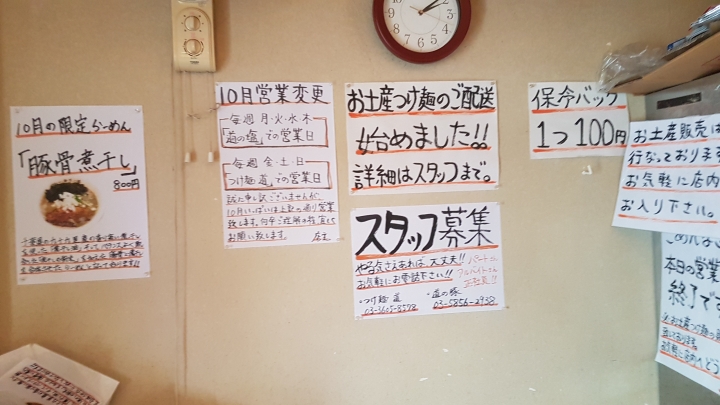 10月の限定らーめん
「豚骨煮干し」
800円
10月営業変更
毎週 月・火・水・木
「道の塩」での営業日
毎週 金・土・日
「つけ麺 道」での営業日
誠に申し訳ございませんが
10月いっぱいは上記の通り営業
致します。何卒ご理解の程宜しく
お願い致します。 店主
お土産つけ麺のご配送
始めました!!
詳細はスタッフまで。
スタッフ募集
やる気さえあれば、大丈夫!!
パートさん
アルバイトさん
正社員!!
お気軽にお電話下さい!!
・つけ麺 道
03-3605-8578
・道の豚
03-5856-2938
保冷パック
1つ100円
お土産販売は
行なっております
お気軽に店内
お入り下さい。
ごめんなさい
本日の営業
終了で
お土産つけ麺の
しております。
お気軽に店内へどう